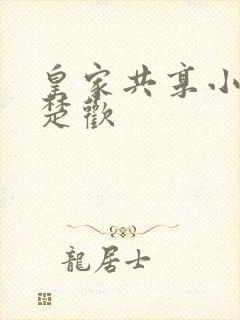 皇家共享小
楚歡
龍居士